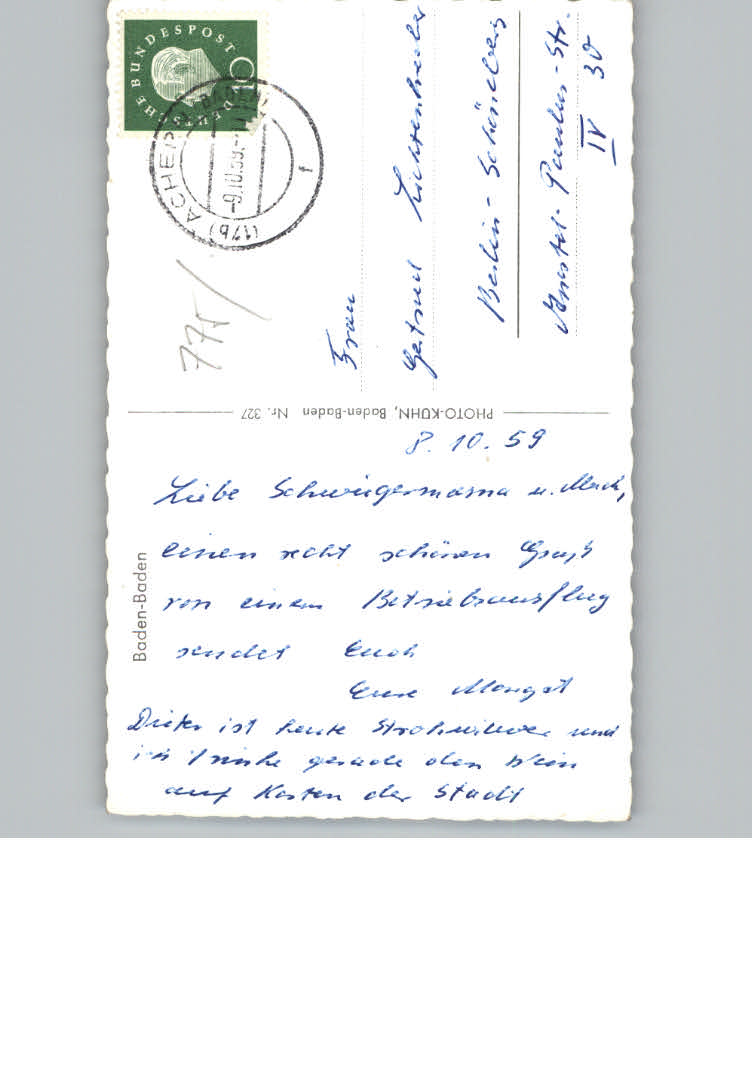 DEUTSCHE BUNDESPOST
(17b) ACHERN (BADEN)
-9.10.59.-
f
775
Frau
Gertrud Lichtenheler
Berlin-Schöneberg
Apostel-Paulus-Str.
IV 30
PHOTO-KÜHN, Baden-Baden Nr. 327
Baden-Baden
8. 10. 59
Liebe Schwiegermama u.
einen recht schönen Gruß
von einem Betriebsausflug
sendet Euch
Eure Margot
Dieter ist heute Strohwitwer und
ich trinke gerade den Wein
auf Kosten der Stadt